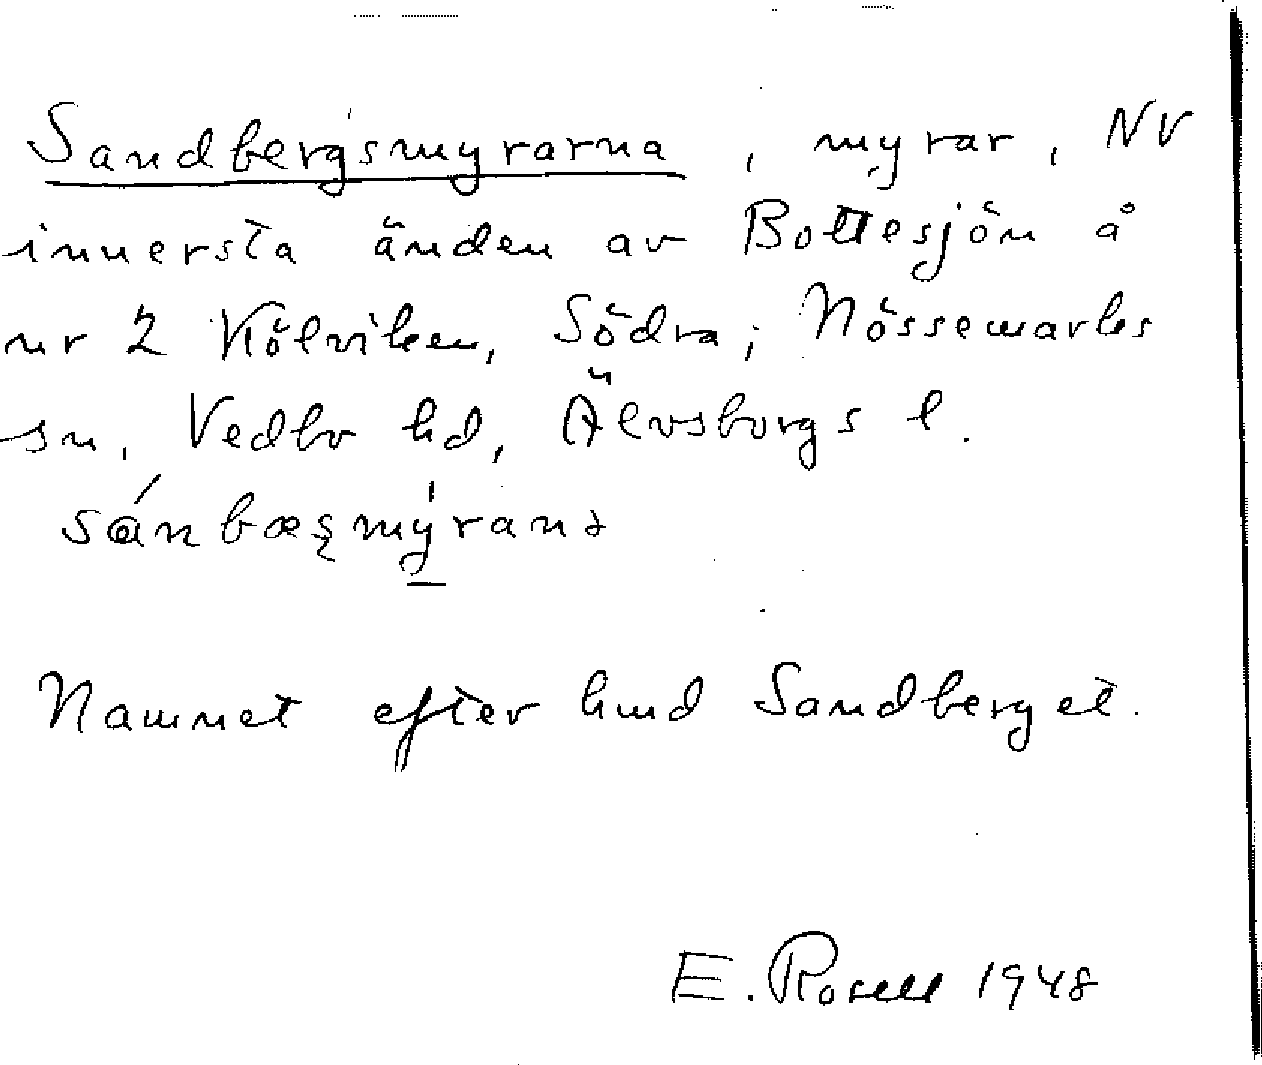 Sandbergsmyrarna, myrar, NV
innersta änden av Bottesjön å
nr 2 Kölviken, Södra; Nössemarks
sn, Vedbo hd, Älvsborgs l.
Namnet efter hmd Sandberget.
E. Rosell 1948